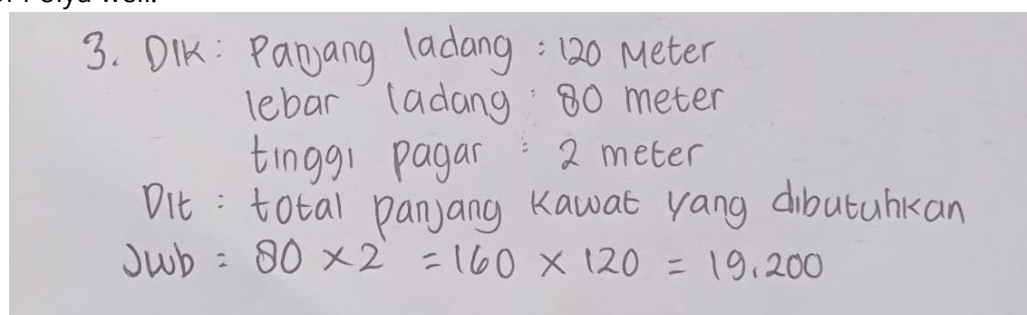 3. Dik : Panjang ladang : 120 Meter
lebar ladang : 80 meter
tinggi pagar : 2 meter
Dit : total panjang kawat yang dibutuhkan
Jwb = 80 × 2 = 160 × 120 = 19.200